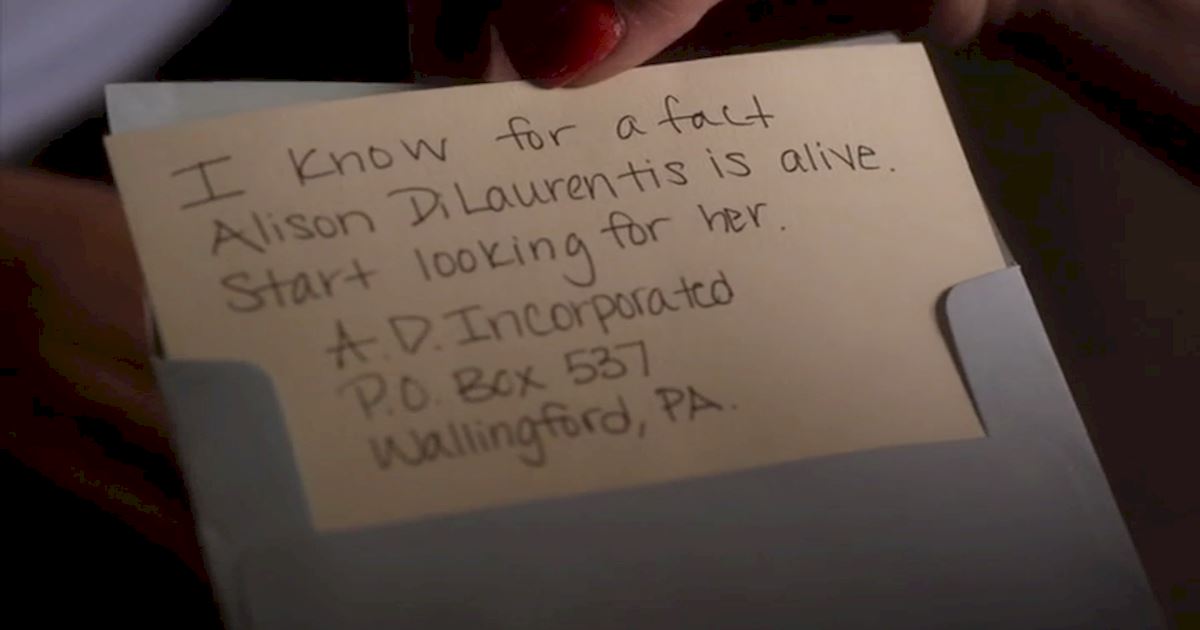 I know for a fact
Alison DiLaurentis is alive.
Start looking for her.
A.D. Incorporated
P.O. Box 537
Wallingford, PA.